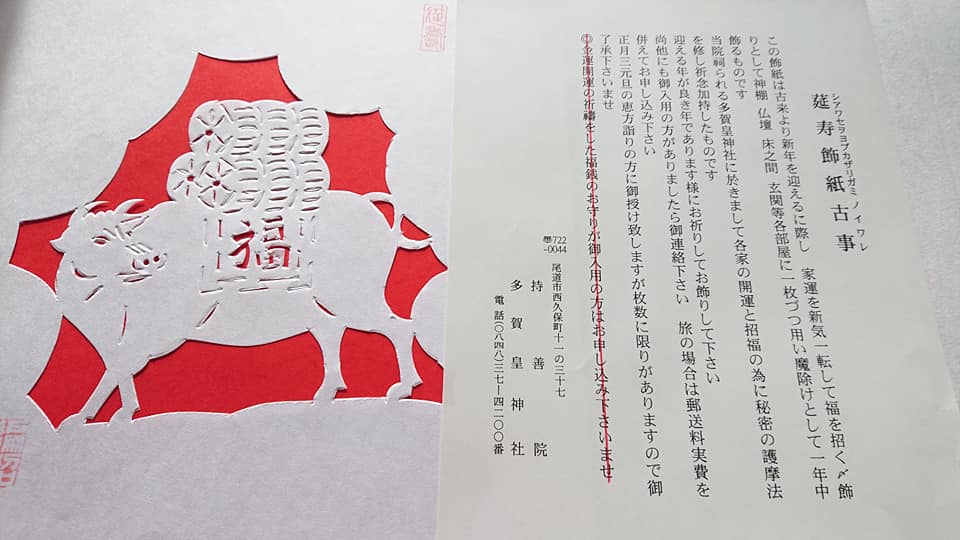 莚寿飾紙古事
シアワセヲヨブカザリガミノイワレ
この飾紙は古来より新年を迎えるに際し 家運を新気一転して福を招く〆飾
りとして神棚 仏壇 床之間 玄関等各部屋に一枚づつ用い魔除けとして一年中
飾るものです
当院祠られる多賀皇神社に於きまして各家の開運と招福の為に秘密の護摩法
を修し祈念加持したものです
迎える年が良き年であります様にお祈りしてお飾りして下さい
尚他にも御入用の方がありましたら御連絡下さい 旅の場合は郵送料実費を
併えてお申し込み下さい
正月三元旦の恵方詣りの方に御授け致しますが枚数に限りがありますので御
了承下さいませ
◎金運開運の祈禱をした福銭のお守りが御入用の方はお申し込み下さいませ
〠722-0044
尾道市西久保町十一の三十七
持善院
多賀皇神社
電話(〇八四八)三七ー四二〇〇番
福